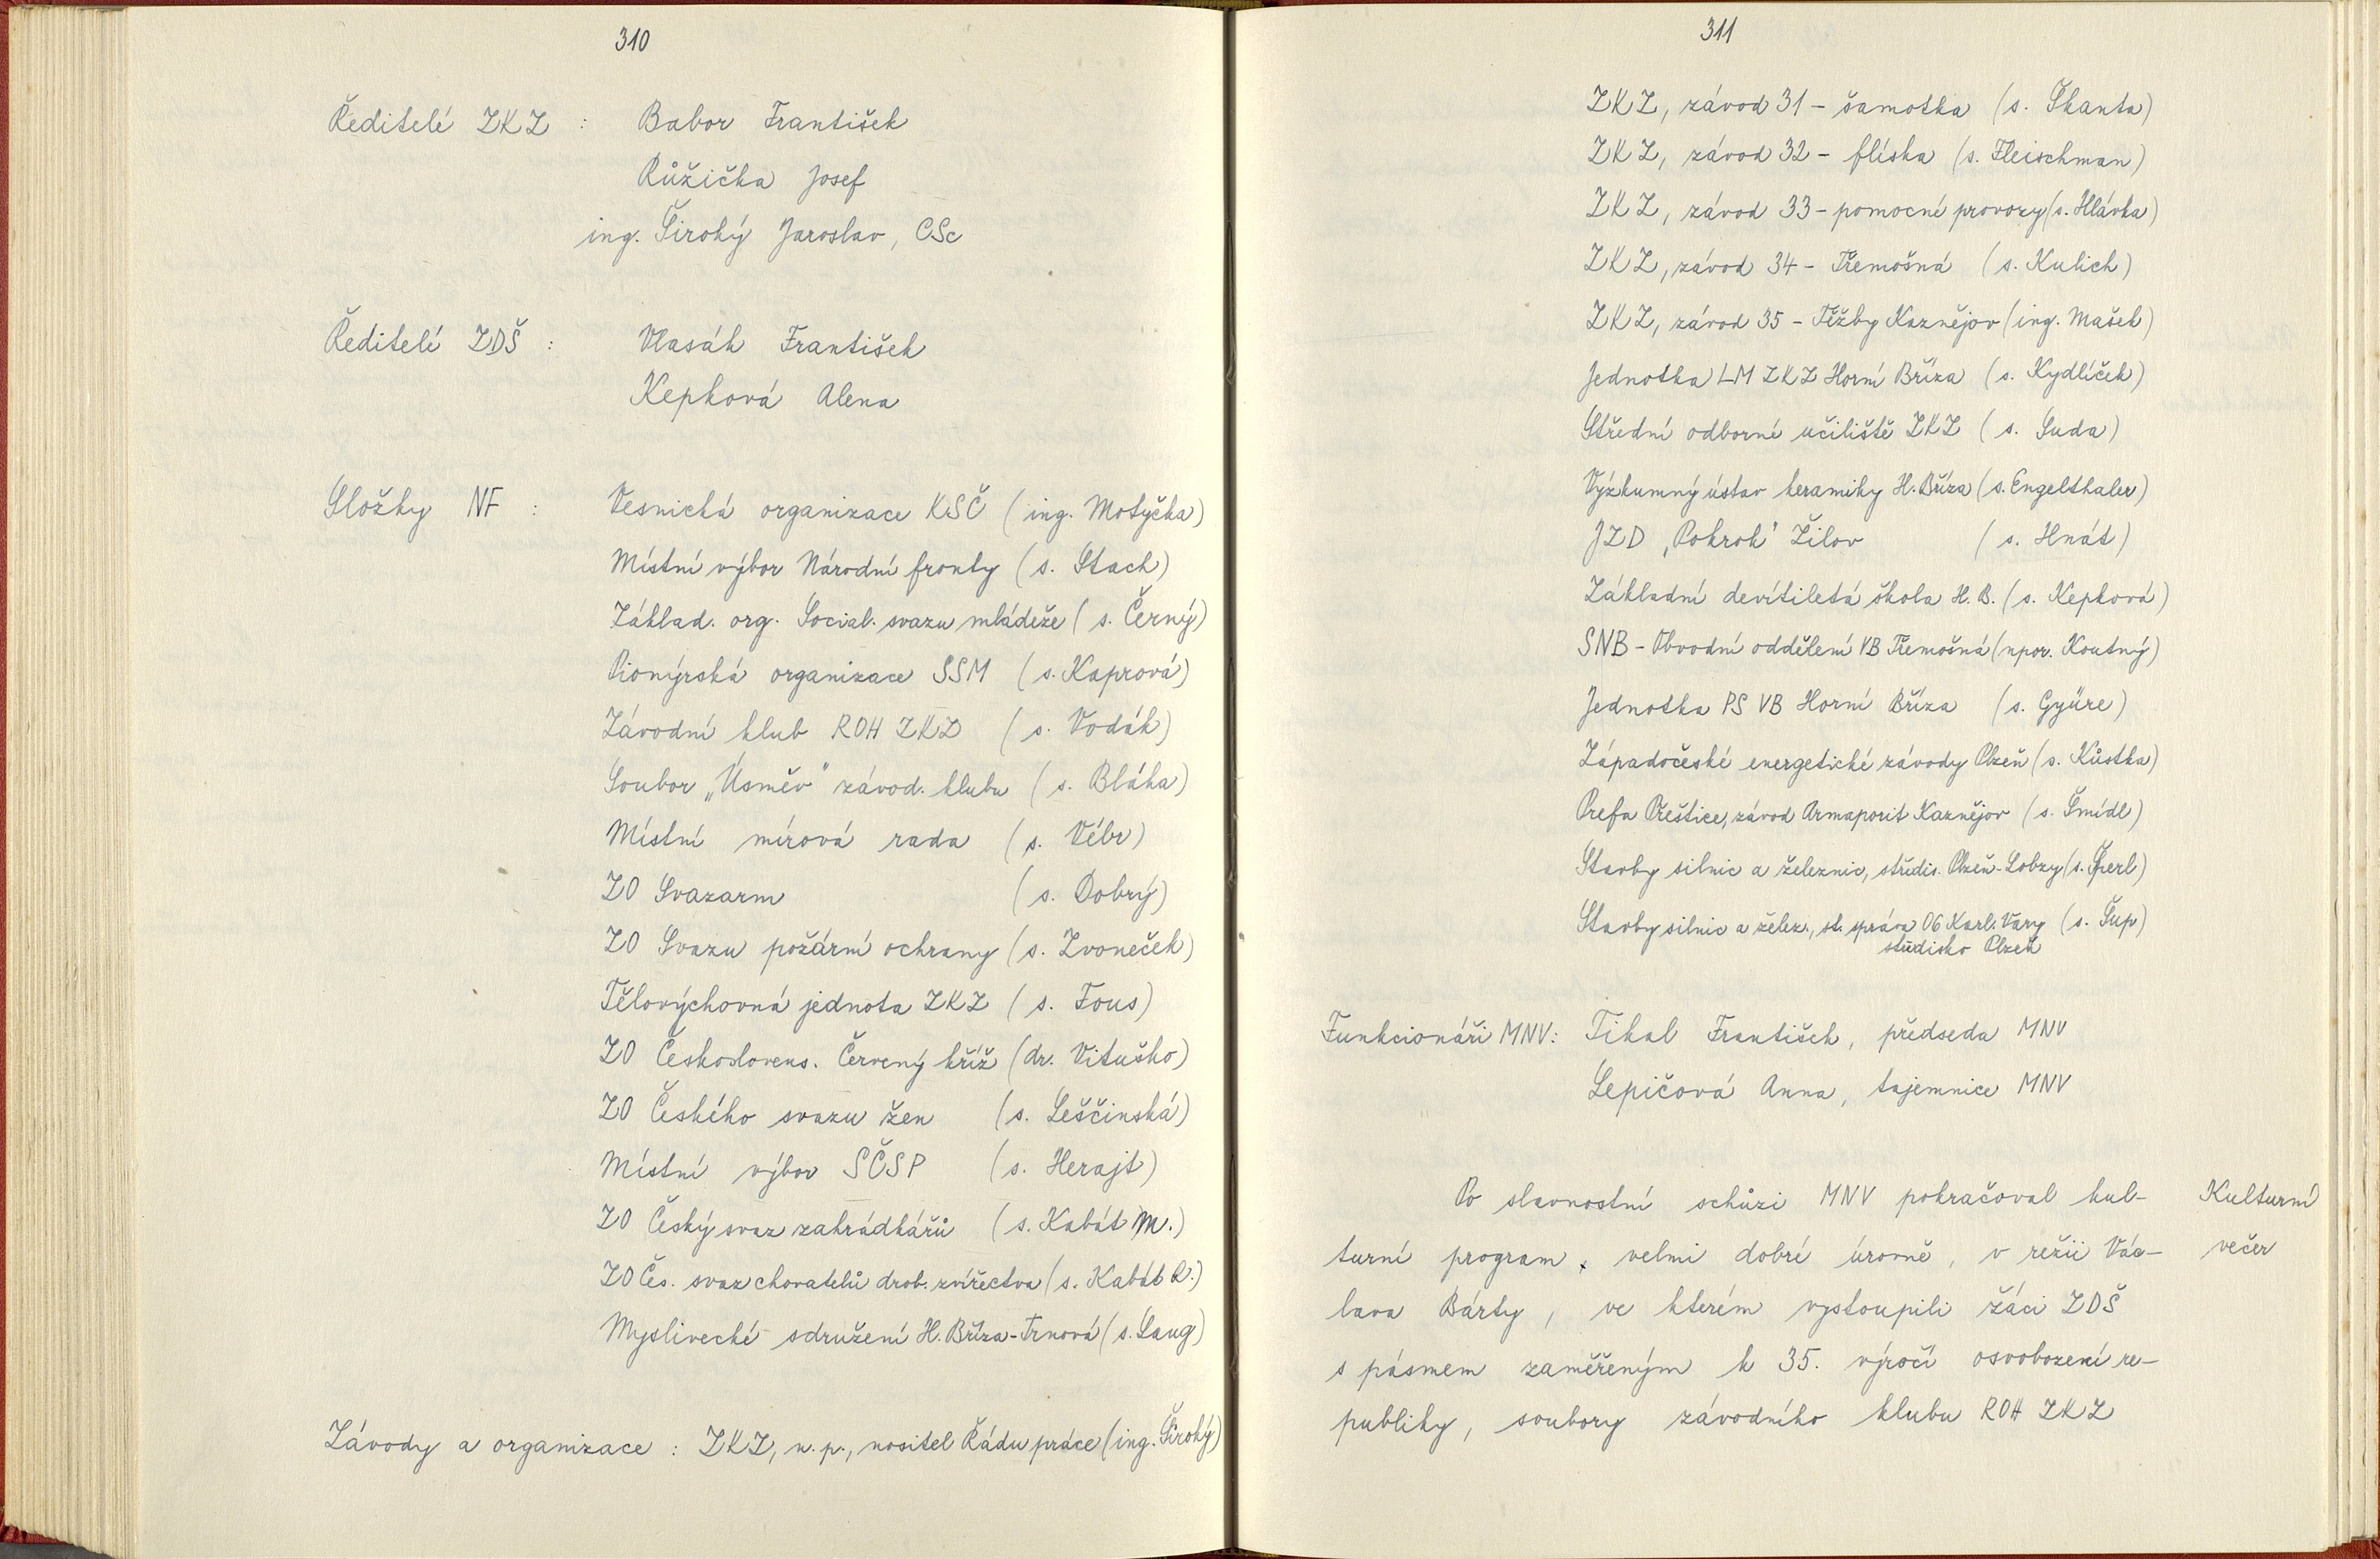 310
Ředitelé ZKZ : Babor František
Růžička Josef
ing. Široký Jaroslav, CSc
Ředitelé ZDŠ : Vlasák František
Kepková Alena
Složky NF : Vesnická organizace KSČ (ing. Motyčka)
Místní výbor Národní fronty (s. Stach)
Základ. org. Social. svazu mládeže (s. Černý)
Pionýrská organizace SSM (s. Kaprová)
Závodní klub ROH ZKZ (s. Vodák)
Soubor „Úsměv" závod. klubu (s. Bláha)
Místní mírová rada (s. Vébr)
ZO Svazarm (s. Dobrý)
ZO Svazu požární ochrany (s. Zvoneček)
Tělovýchovná jednota ZKZ (s. Fous)
ZO Českosloven. Červený kříž (dr. Vituško)
ZO Českého svazu žen (s. Leščinská)
Místní výbor SČSP (s. Herajt)
ZO Český svaz zahrádkářů (s. Kabát M.)
ZO Čes. svaz chovatelů drob. zvířectva (s. Kabát R.)
Myslivecké sdružení H. Bříza-Trnová (s. Laug)
Závody a organizace : ZKZ, n. p., nositel Řádu práce (ing. Široký)
311
ZKZ, závod 31 - šamotka (s. Škanta)
ZKZ, závod 32 - flíska (s. Fleischman)
ZKZ, závod 33 - pomocné provozy (s. Hlávka)
ZKZ, závod 34 - Třemošná (s. Kulich)
ZKZ, závod 35 - Těžby Kaznějov (ing. Mašek)
Jednotka LM ZKZ Horní Bříza (s. Kydlíček)
Střední odborné učiliště ZKZ (s. Suda)
Výzkumný ústav keramiky H. Bříza (s. Engelthaler)
JZD ‚Pokrok' Žilov (s. Hnát)
Základní devítiletá škola H. B. (s. Kepková)
SNB - Obvodní oddělení VB Třemošná (npor. Koutný)
Jednotka PS VB Horní Bříza (s. Gyüre)
Západočeské energetické závody Plzeň (s. Kůstka)
Prefa Přeštice, závod Armaporit Kaznějov (s. Šmídl)
Stavby silnic a železnic, středis. Plzeň-Lobzy (s. Šperl)
Stavby silnic a želez., st. správa 06 Karl. Vary (s. Šup)
středisko Plzeň
Funkcionáři MNV: Tikal František, předseda MNV
Lepičová Anna, tajemnice MNV
Po slavnostní schůzi MNV pokračoval kul- Kulturní
turní program, velmi dobré úrovně, v režii Vác- večer
lava Bárty, ve kterém vystoupili žáci ZDŠ
s pásmem zaměřeným k 35. výročí osvobození re-
publiky, soubory závodního klubu ROH ZKZ